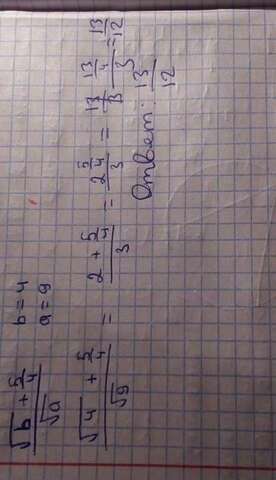 (√b + 5/4)/√a b = 4
a = 9
(√4 + 5/4)/√9 = (2 + 5/4)/3 = (2 5/4)/3 = (13/4)/3 = 13/12
Ответ: 13/12